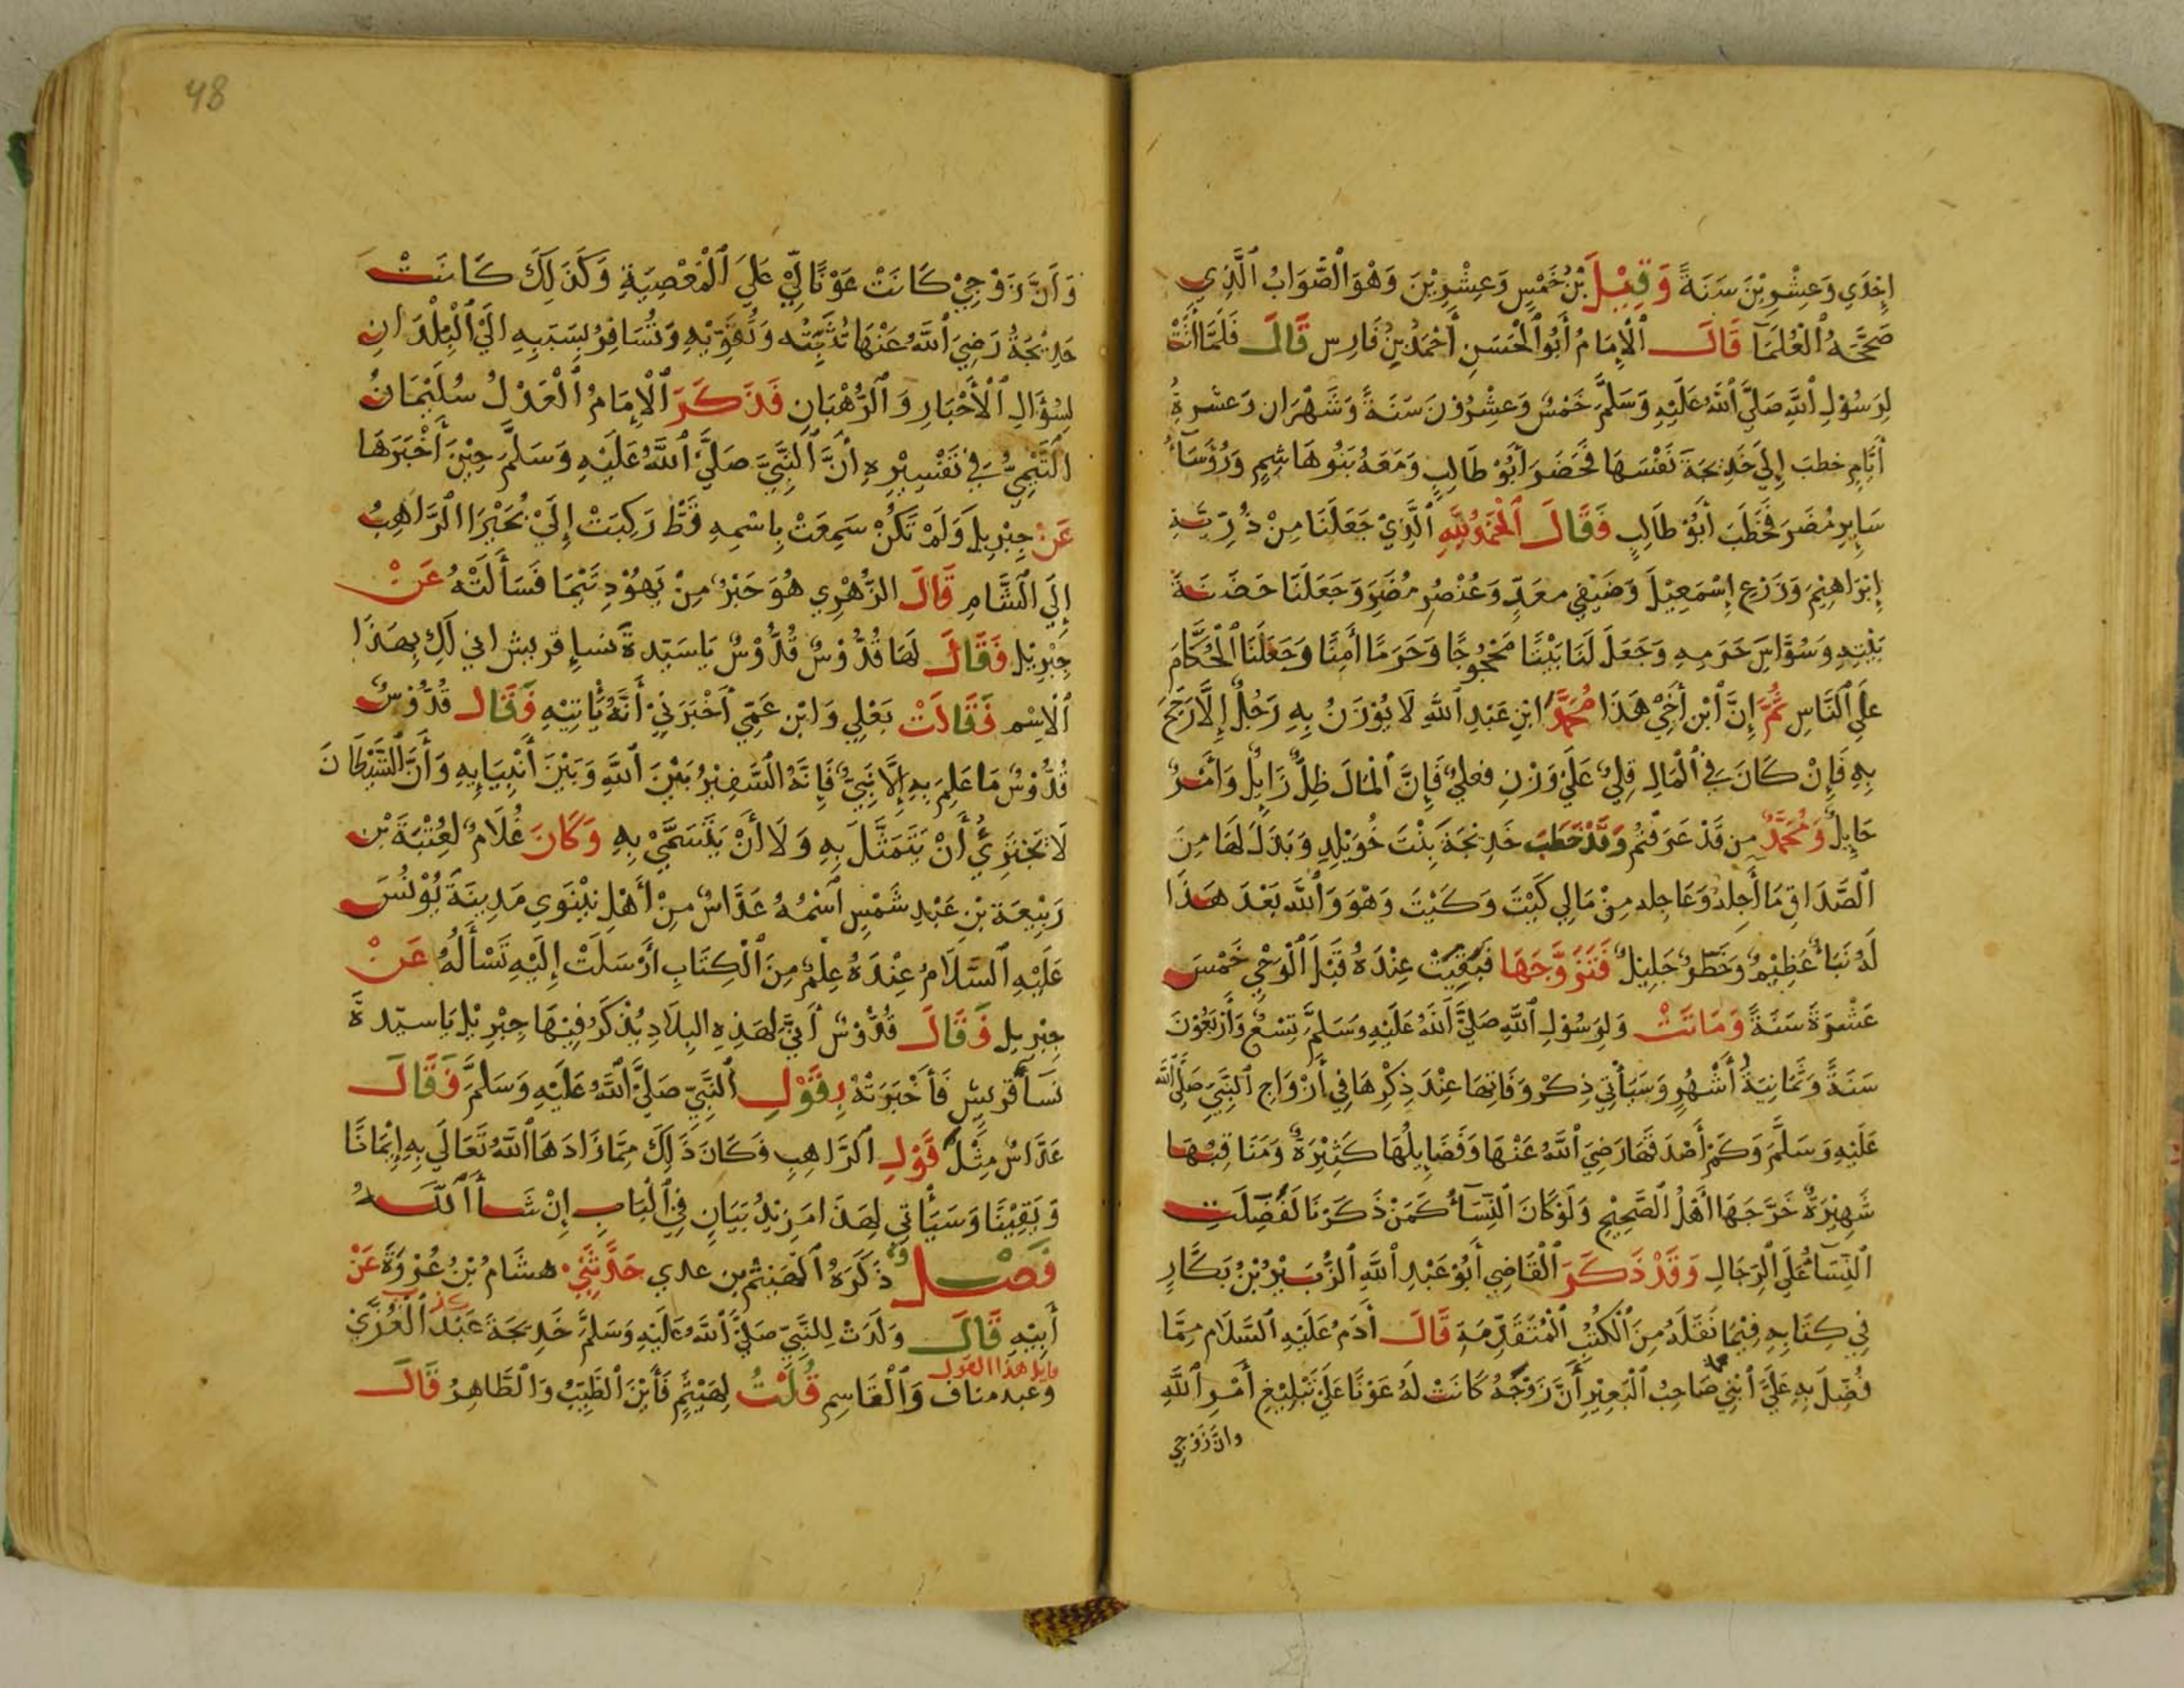 إِحْدَي وَعِشْرِيْنَ سَنَةً وَقِيْلَ بْنُ خَمْسٍ وَعِشْرِيْنَ وَهْوَ الصَّوَابُ الَّذِي
صَحَّحَهُ الْعُلَمَآ قَالَ الْإِمَامُ أَبُو الْحَسَنِ أَحْمَدُ بْنُ فَارِس قَالَ فَلَمَّا أَتَتْ
لِرَسُوْلِ اللَّهِ صَلَّيَ اللَّهُ عَلَيْهِ وَسَلَّمَ خَمْسٌ وَعِشْرُوْنَ سَنَةً وَشَهْرَانِ وَعشرةُ
أَيَّامٍ خطبَ إِلَي خَدِيْجَةَ نَفْسَهَا فَحَضَرَ أَبُوْ طَالِبٍ وَمَعَهُ بَنُو هَاشِمٍ وَرُؤَسَآءُ
سَايِرِ مُضَرَ فَخَطَبَ أَبُوْ طَالِبٍ فَقَالَ الْحَمْدُ لِلَّهِ الَّذِيْ جَعَلَنَا مِنْ ذُرِّيَّةِ
إِبْرَاهِيْمَ وَزَرْعِ إِسْمَعِيْلَ وَضَيْضِي معَدٍّ وَعُنْصُرِ مُضَرَ وَجَعَلَنَا حَضَنَةَ
بَيْتِهِ وَسُوَّاسَ حَرَمِهِ وَجَعَلَ لَنَا بَيْتًا مَحْجُوجًا وَحَرَمًا أَمِنًا وَجَعَلَنَا الْحُكَّامَ
عَلَي النَّاسِ ثُمَّ إِنَّ ابْنَ أَخِيْ هَذَا مُحَمَّدُ ابْنِ عَبْدِ اللَّهِ لَا يُوْزَنُ بِهِ رَجُلٌ إِلَّا رَجَحَ
بِهِ فَإِنْ كَانَ فِي الْمَالِ قِلٌّ فَإِنَّ الْمَالَ ظِلٌّ زَايِلٌ وَأَمْرٌ
حَايِلٌ وَمُحَمَّدٌ من قَدْ عَرَفْتُم وَقَدْ خَطَبَ خَدِيْجَةَ بِنْتَ خُوَيْلِدٍ وَبَذَلَ لَهَا مِنَ
الصَّدَاقِ مَا أَجِلُهُ وَعَاجِله مِنْ مَالِي كَيْتَ وَكَيْتَ وَهْوَ وَاللَّهِ بَعْدَ هَذَا
لَهُ نَبَأٌ عَظِيْمٌ وَخَطَرٌ جَلِيْلٌ فَتَزَوَّجَهَا فَبَقِيَتْ عِنْدَهُ قَبْلَ الْوَحْيِ خَمْسَ
عَشْرَةَ سَنَةً وَمَاتَتْ وَلِرَسُوْلِ اللَّهِ صَلَّيَ اللَّهُ عَلَيْهِ وَسَلَّمَ تِسْعٌ وَأَرْبَعُوْنَ
سَنَةً وَثَمَانِيَةُ أَشْهُرٍ وَسَيَأْتِي ذِكْرُ وَفَاتِهَا عِنْدَ ذِكْرِهَا فِي أَزْوَاجِ النَّبِيِّ صَلَّي اللَّهُ
عَلَيْهِ وَسَلَّمَ وَكَمْ أَصْدَقَهَا رَضِيَ اللَّهُ عَنْهَا وَفَضَايِلُهَا كَثِيْرَةٌ وَمَنَاقِبُهَا
شَهِيْرَةٌ خَرَّجَهَا أَهْلُ الصَّحِيْحِ وَلَوْ كَانَ النِّسَآءُ كَمَنْ ذَكَرْنَا لَفُضِّلَتِ
النِّسَآءُ عَلَي الرِّجَالِ وَقَدْ ذَكَرَ الْقَاضِي أَبُوْ عَبْدِ اللَّهِ الزُّبَيْرُ بْنُ بَكَّارٍ
فِي كِتَابِهِ فِيْمَا نَقَلَهُ مِنَ الْكُتُبِ الْمُتَقَدِّمَةِ قَالَ أَدَمُ عَلَيْهِ السَّلَامِ مِمَّا
فُضِّلَ بِهِ عَلَيَّ ابْنِي صَاحِبُ الْبَعِيْرِ أَنَّ زَوْجَهُ كَانَتْ لَهُ عَوْنًا عَلَيَ تَبْلِيْغِ أَمْرِ اللَّهِ
وانَّ زَوْجِي
48
وَأَنَّ زَوْجِيْ كَانَتْ عَوْنًا لِيْ عَلَيَ الْمَعْصِيَةِ وَكَذَلِكَ كَانَتْ
خَدِيْجَةُ رَضِيَ اللَّهُ عَنْهَا تُثَبِّتُه وَتُقَوِّيْهِ وَتُسَافِرُ بِسَبَبِهِ اِلَيَ الْبِلْدَانِ
لِسُؤَالِ الْأَحْبَارِ وَالرُّهْبَانِ فَذَكَرَ الْإِمَامُ الْعَدْلُ سُلَيْمَانُ
التَّيْمِيُّ فِي تَفْسِيْرِهِ أَنَّ النَّبِيَّ صَلَّيَ اللَّهُ عَلَيْهِ وَسَلَّمَ حِيْنَ أَخْبَرَهَا
عَنْ جِبْرِيلَ وَلَمْ تَكُنْ سَمِعَتْ بِاسْمِهِ قَطُّ رَكِبَتْ إِلَيْ بُحَيْرَا الرَّاهِبُ
إِلَي الشَّامِ قَالَ الزُّهْرِي هُوَ حَبْرٌ مِنْ يَهُوْدِ تَيْمَا فَسَأَلَتْهُ عَنْ
جِبْرِيْل فَقَالَ لَهَا قُدُّوْسٌ قُدُّوْسٌ يَا سَيّدةَ نسإِ قريش اني لَكِ بِهَذَا
الْاِسْم فَقَالَتْ بَعْلِي وَابْن عَمِّي اَخْبَرَنِيْ أَنَّهُ يَأْتِيْهِ فَقَالَ قُدُّوْسٌ
قُدُّوْسٌ مَا عَلِمَ بِهِ إِلَّا نَبِيٌّ فَإِنَّهُ السَّفِيْرُ بَيْنَ اللَّهِ وَبَيْنَ أَنْبِيَايِهِ وَأَنَّ الشَّيْطَانَ
لَا يَجْتَرِيُ أَنْ يَتَمَثَّلَ بِهِ وَلَا أَنْ يَتَسَمَّيْ بِهِ وَكَانَ غُلَامٌ لِعُتْبَةَ بْنِ
رَبِيْعَةَ بْنِ عَبْدِ شَمْسٍ اسْمُهُ عَدَّاسٌ مِنْ أَهْلِ نِيْنَوِي مَدِيْنَةَ يُوْنُسَ
عَلَيْهِ السَّلَامُ عِنْدَهُ عِلْمٌ مِنَ الْكِتَابِ أَرْسَلَتْ إِلَيْهِ تَسْأَلُهُ عَنْ
جِبْرِيل فَقَالَ قُدُّوْسٌ أَنَّي لِهَذِهِ البِلَادِ يُذْكَرُ فِيْهَا جِبْرِيْل يَا سيّدةَ
نَسَآ قريشٍ فَأَخْبَرَتْهُ بِقَوْلِ النَّبِيِّ صَلَّيَ اللَّهُ عَلَيْهِ وَسَلَّمَ فَقَالَ
عَدَّاسٌ مِثْلَ قَوْلِ الرَّاهِبِ فَكَانَ ذَلِكَ مِمَّا زَادَهَا اللَّهُ تَعَالَي بِهِ إِيْمَانًا
وَيَقِيْنًا وَسَيَأْتِي لِهَذَا مَزِيْدُ بَيَانٍ فِي الْبَابِ إِنْ شَأَ اللَّهُ
فَصْلٌ ذَكَرَهُ الْهَيْثَمُ بن عدي حَدَّثَنِيْ هشَامُ بْنُ عُرْوَةَ عَنْ
أَبِيْهِ قَالَ وَلَدَتْ لِلنَّبِيِّ صَلَّيَ اللَّهُ عَلَيْهِ وَسَلَّمَ خَدِيْجَةَ عَبْدَ الْعُزَّيْ
كذب
قايل هذا القول
وعبد مناف وَالْقَاسِم قُلْتُ لِهَيْثَمٍ فَأَيْنَ الطَّيِّبُ وَالطَّاهِرُ قَالَ